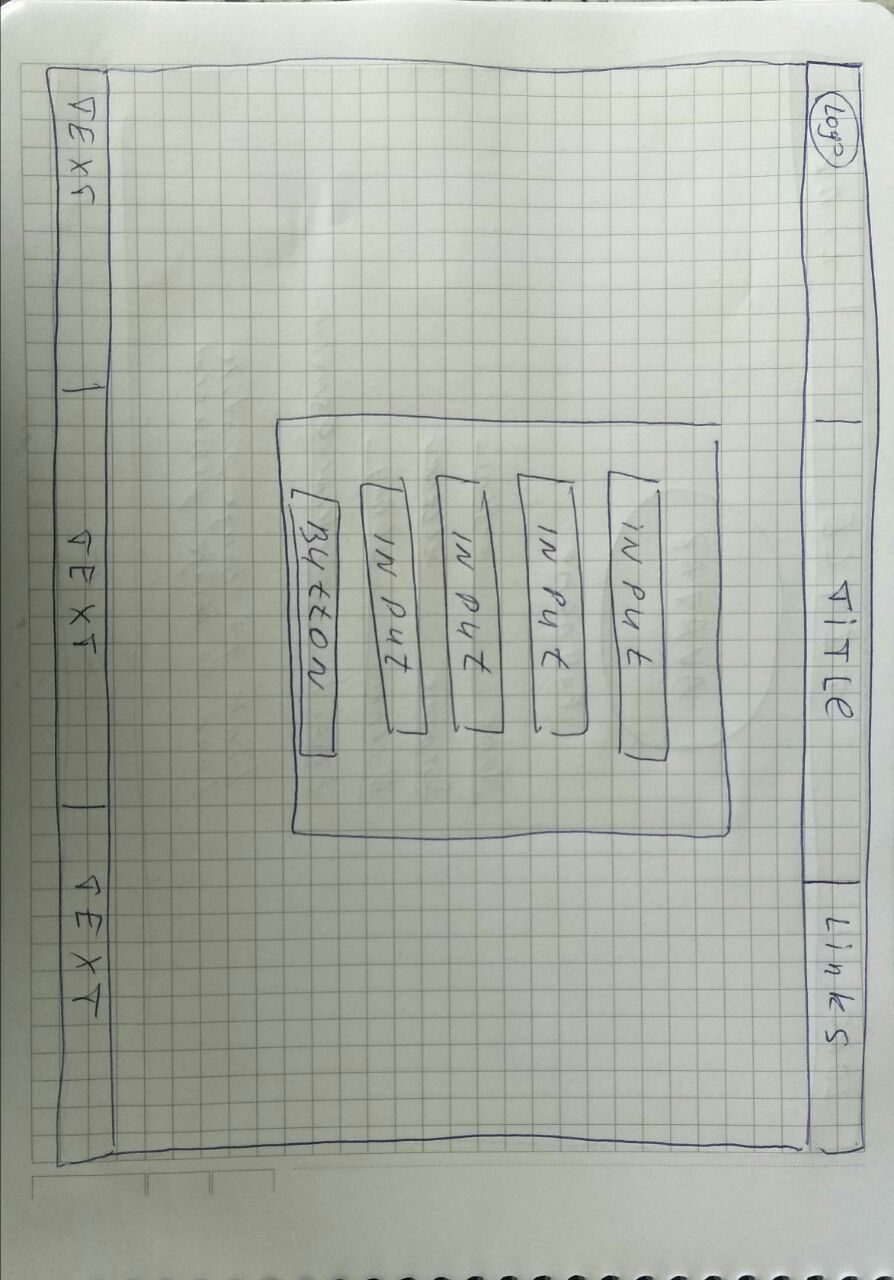 Logo
TiTLe
Links
iNPut
INPut
INPut
INPut
ButtON
TEXT
TEXT
TEXT